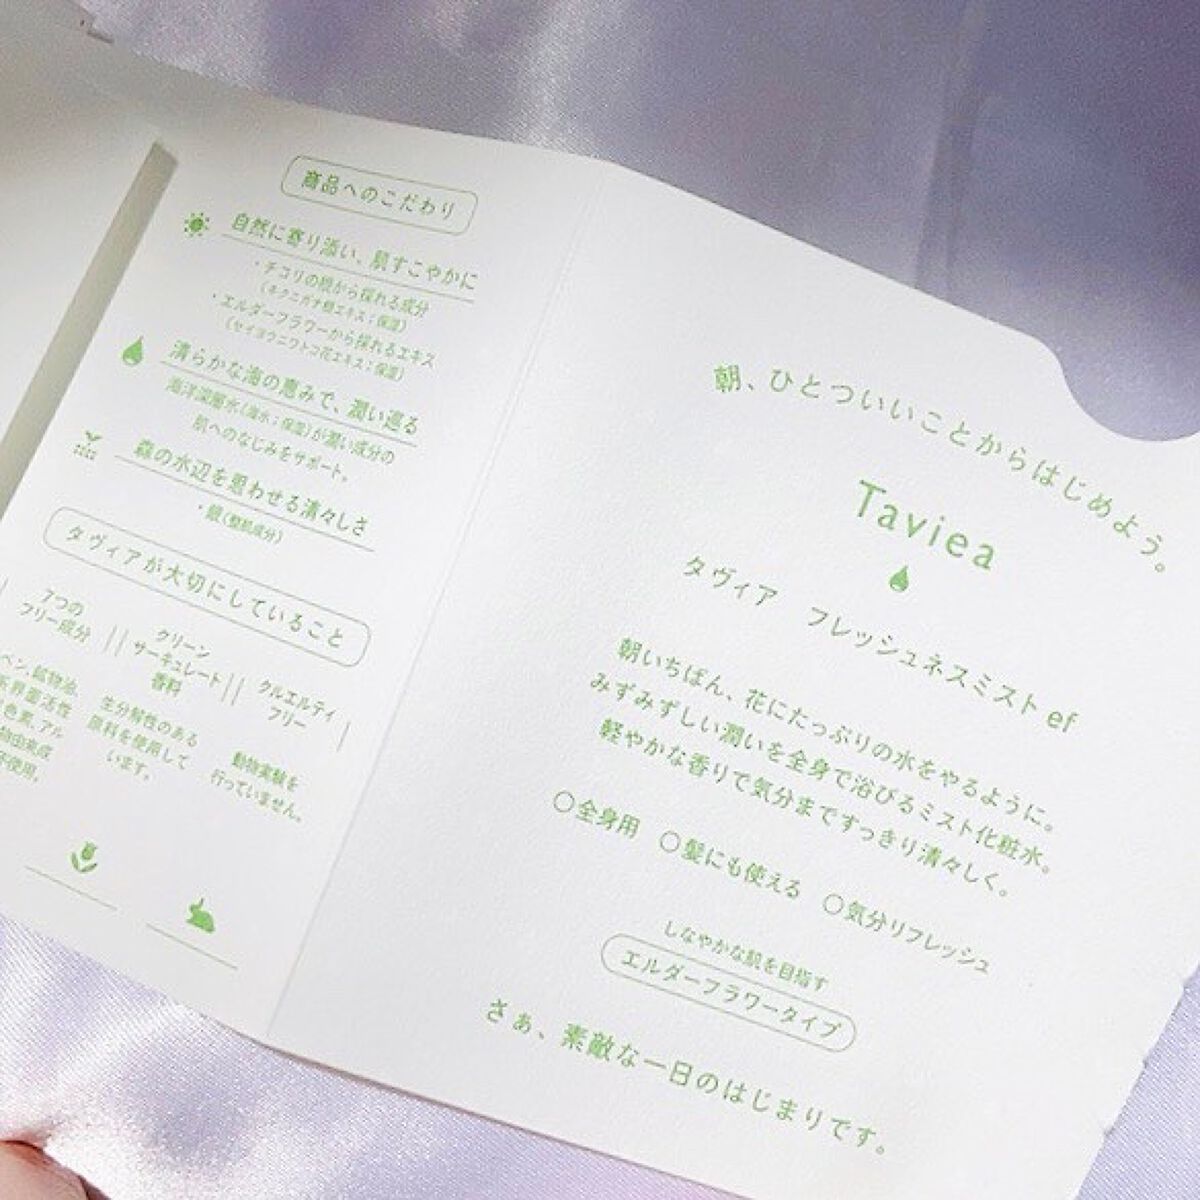 商品へのこだわり
自然に寄り添い、肌すこやかに
・チコリの根から採れる成分
(キクニガナ根エキス:保湿)
・エルダーフラワーから採れるエキス
(セイヨウニワトコ花エキス:保湿)
清らかな海の恵みで、潤い巡る
海洋深層水(海水:保湿)が潤い成分の
肌へのなじみをサポート。
森の水辺を思わせる清々しさ
・銀(整肌成分)
タヴィアが大切にしていること
7つの
フリー成分
ベン、鉱物油、
界面活性
色素、アル
物由来成
不使用。
クリーン
サーキュレート
香料
生分解性のある
原料を使用して
います。
クルエルティ
フリー
動物実験を
行っていません。
朝、ひとついいことからはじめよう。
Taviea
タヴィア フレッシュネスミスト ef
朝いちばん、花にたっぷりの水をやるように。
みずみずしい潤いを全身で浴びるミスト化粧水。
軽やかな香りで気分まですっきり清々しく。
○全身用 ○髪にも使える ○気分リフレッシュ
しなやかな肌を目指す
エルダーフラワータイプ
さぁ、素敵な一日のはじまりです。